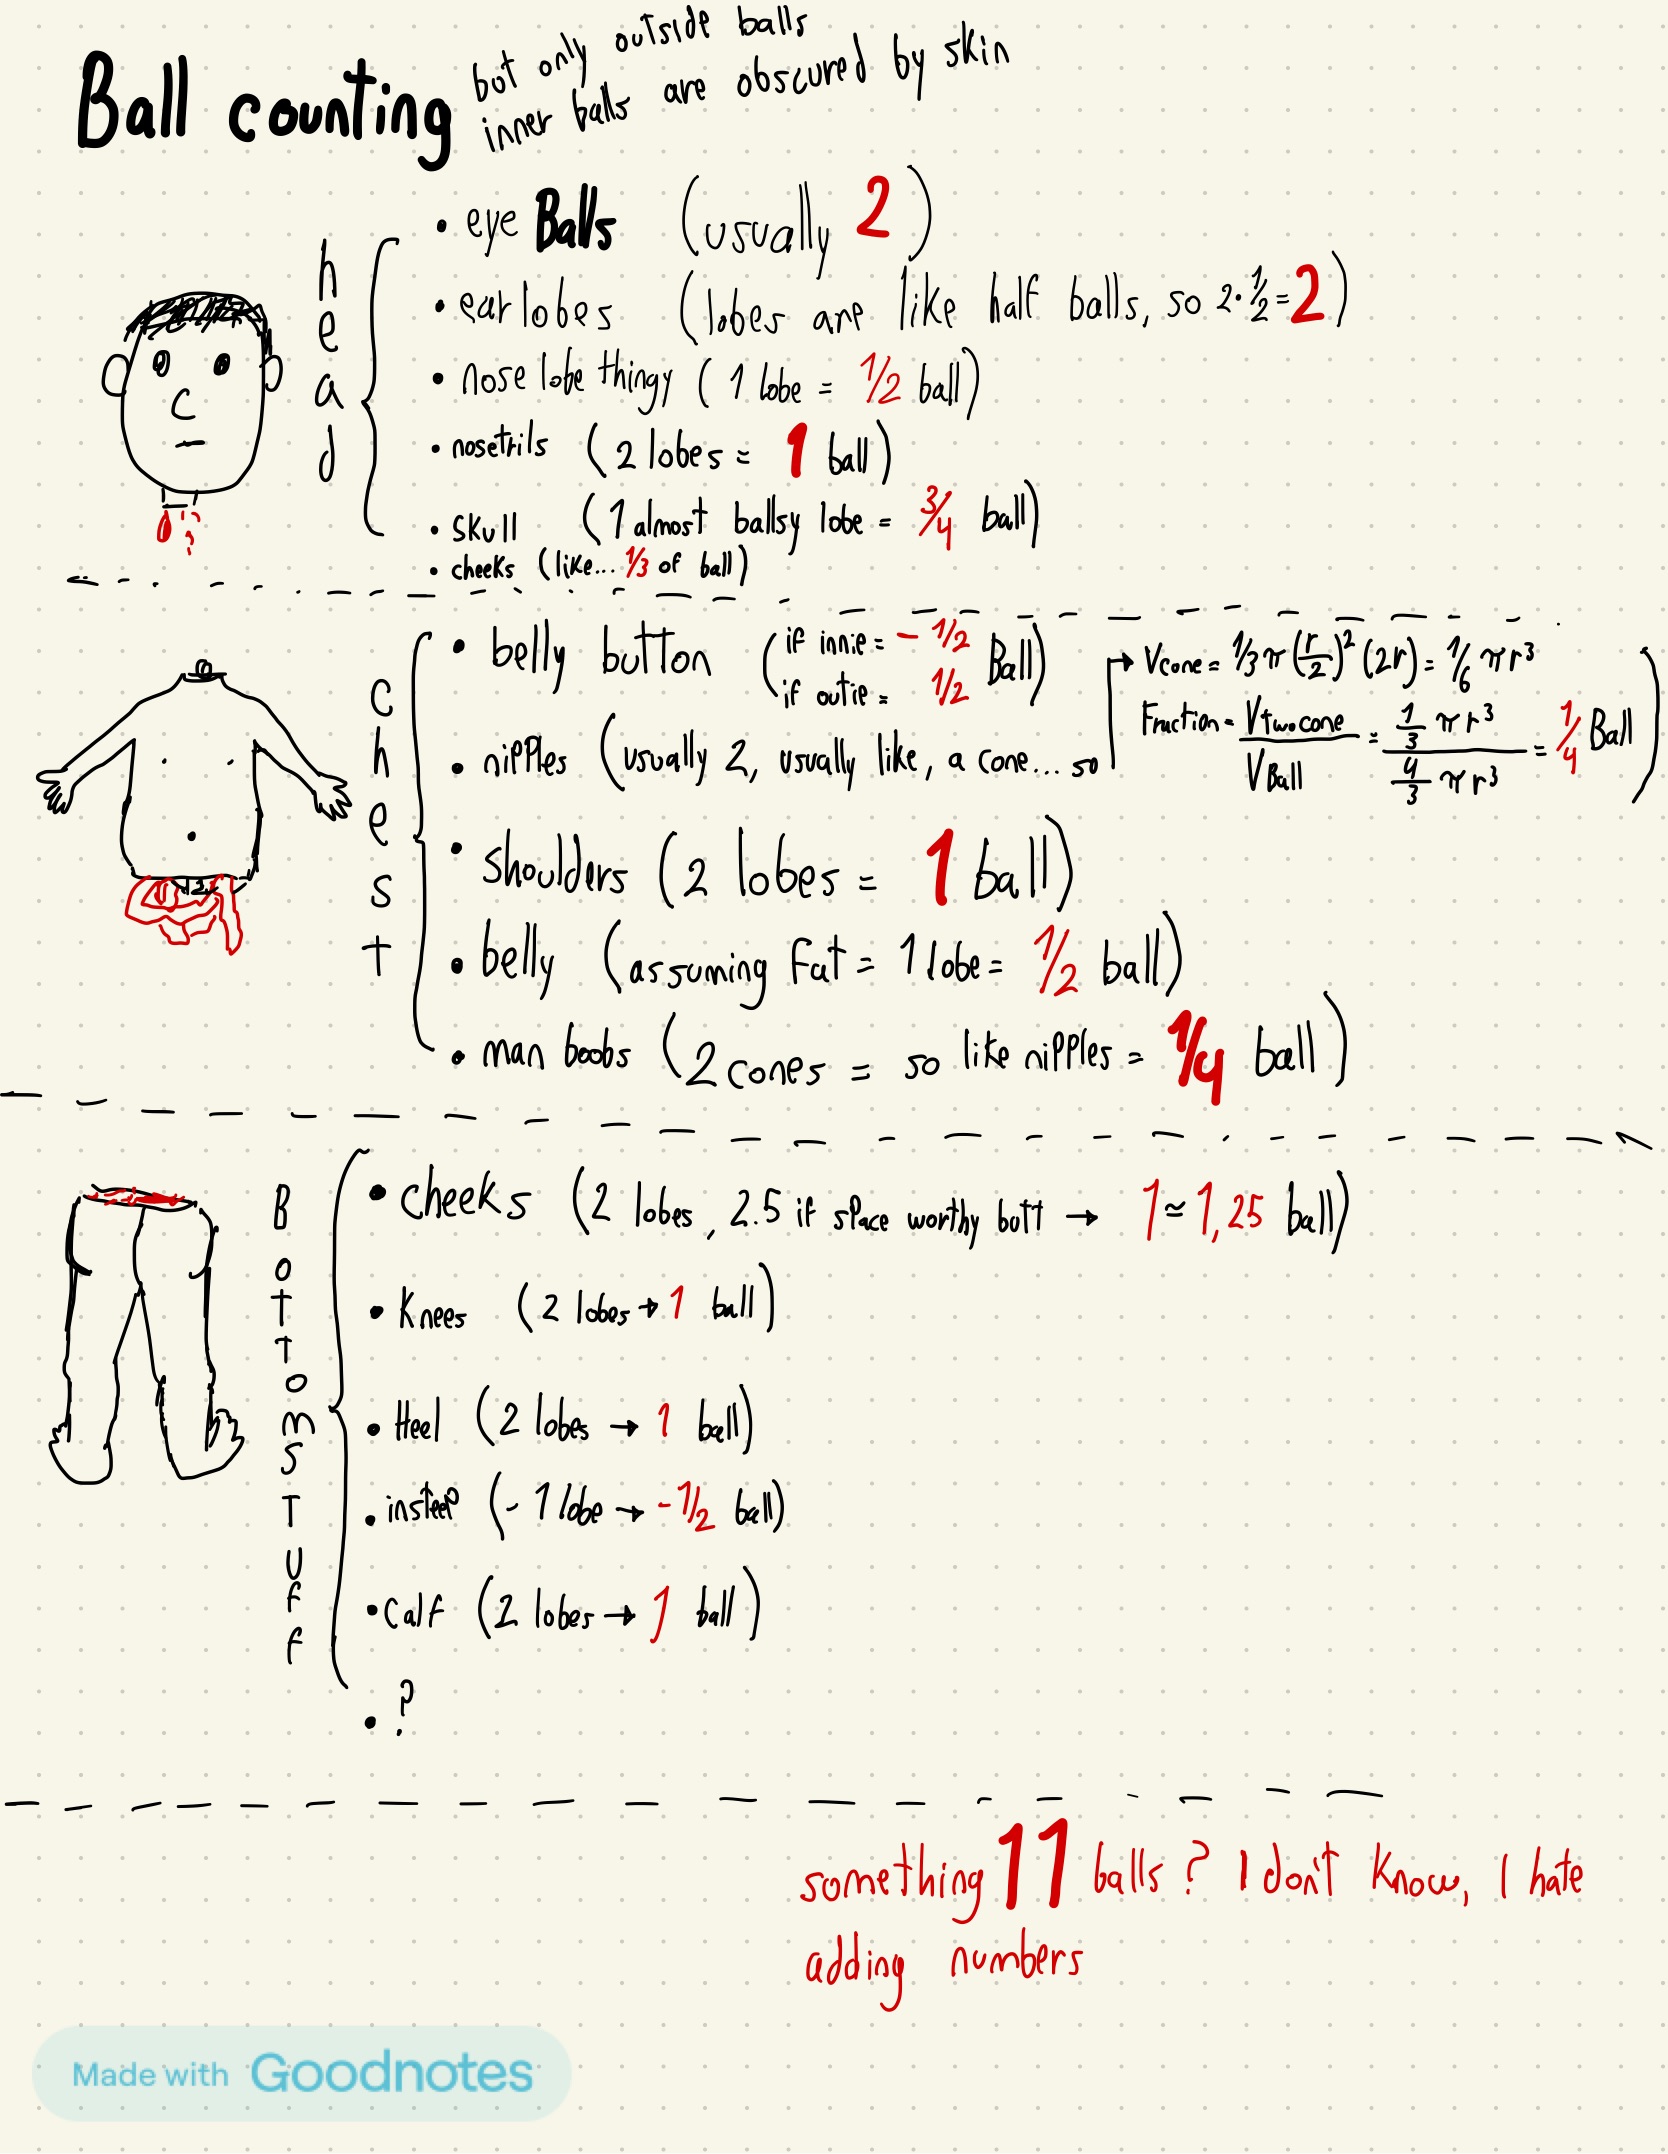 Ball counting
but only outside balls
inner balls are obscured by skin
head
• eye Balls (usually 2)
• ear lobes (lobes are like half balls, so 2·1/2=2)
• nose lobe thingy (1 lobe = 1/2 ball)
• nosetrils (2 lobes = 1 ball)
• skull (1 almost ballsy lobe = 3/4 ball)
• cheeks (like... 1/3 of ball)
chest
• belly button (if innie = - 1/2 if outie = 1/2 Ball)
• nipples (usually 2, usually like, a cone... so → Vcone = 1/3 π (r/2)² (2r) = 1/6 π r³
Fraction = Vtwocone / VBall = 1/3 π r³ / 4/3 π r³ = 1/4 Ball)
• shoulders (2 lobes = 1 ball)
• belly (assuming fat = 1 lobe = 1/2 ball)
• man boobs (2 cones = so like nipples = 1/4 ball)
Bottom stuff
• cheeks (2 lobes, 2.5 if space worthy butt → 1 ≈ 1,25 ball)
• Knees (2 lobes → 1 ball)
• Heel (2 lobes → 1 ball)
• insteep (- 1 lobe → -1/2 ball)
• calf (2 lobes → 1 ball)
• ?
something 11 balls? I don't know, I hate
adding numbers
Made with Goodnotes